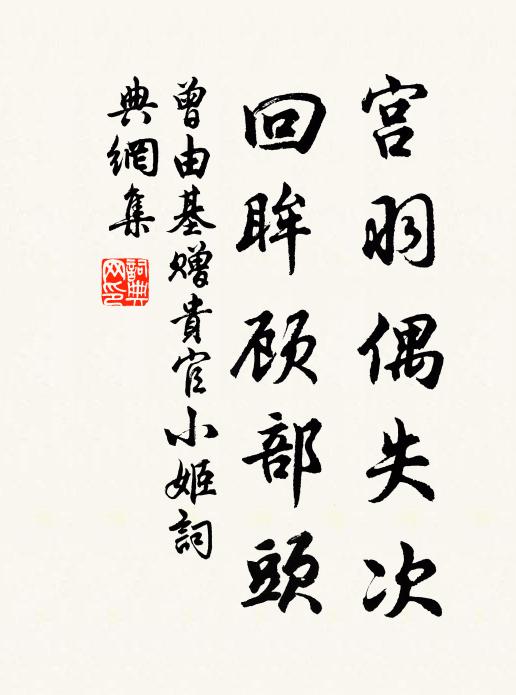 宫羽偶失次
回眸顾部頭
曾由基赠貴官小姬詞
典網集
詞典网印